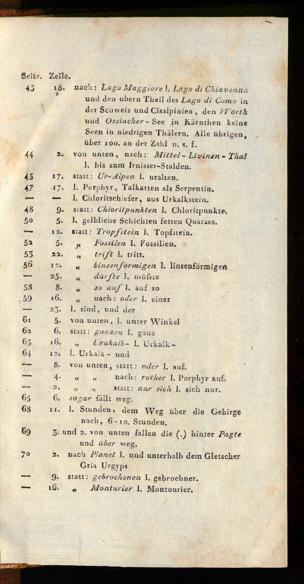 Seite. Zeile.
43 18. nach: Lago Maggiore l. Lago di Chiavenna
und den obern Theil des Lago di Como in
der Schweiz und Cisalpinien, den Worth
und Ossiacher-See in Kärnthen keine
Seen in niedrigen Thälern. Alle übrigen,
über 100. an der Zahl u. s. f.
44 2. von unten, nach: Mittel-Livinen-Thal
l. bis zum Irnisser-Stalden.
45 17. statt: Ur-Alpen l. uralten.
47 17. l. Porphyr, Talkarten als Serpentin.
— — l. Chloritschiefer, aus Urkalkstein.
48 9. statt: Chloritpunkten l. Chloritpunkte.
50 5. l. gelbliche Schichten fetten Quarzes.
— 12. statt: Tropfstein l. Topfstein.
52 5. „ Fossilen l. Fossilien.
53 22. „ trift l. tritt.
56 12. „ binsenförmigen l. linsenförmigen
— 25. „ dürfte l. müfste
58 8. „ so auf l. auf so
59 16. „ nach: oder l. einer
— 23. l. sind, und der
61 5. von unten, l. unter Winkel
62 6. statt: ganzen l. ganz
63 16. „ Urakalk- l. Urkalk-
64 12. l. Urkalk- und
— 8. von unten, statt: oder l. auf.
— 4. „ „ nach: rother l. Porphyr auf.
— 2. „ „ statt: nur sich l. sich nur.
65 6. sogar fällt weg.
68 11. l. Stunden, dem Weg über die Gebirge
nach, 6-10. Stunden.
69 3. und 2. von unten fallen die (.) hinter Pagte
und über weg.
70 2. nach Planet l. und unterhalb dem Gletscher
Gria Urgyps
— 9. statt: gebrochenen l. gebrochner.
— 16. „ Monturier l. Montourier.